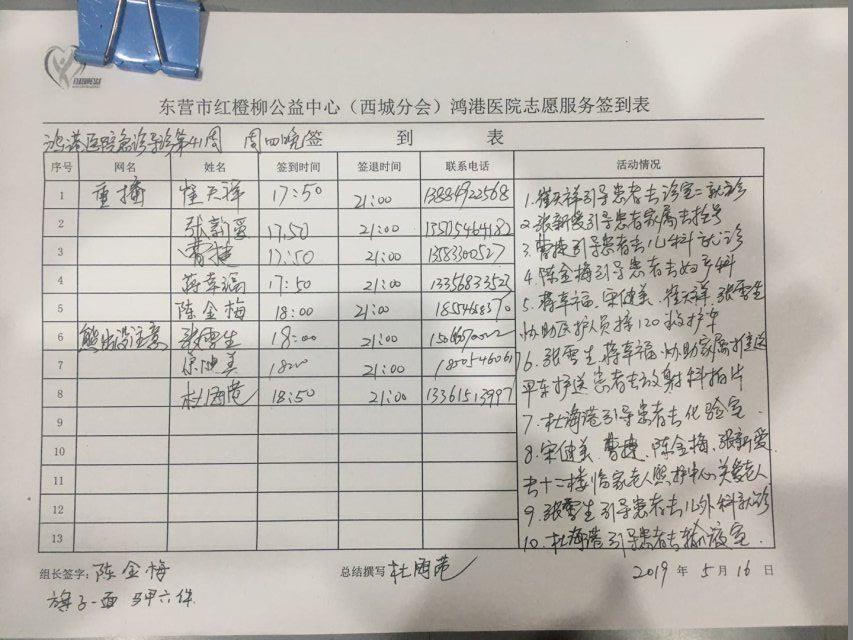 东营市红橙柳公益中心（西城分会）鸿港医院志愿服务签到表
鸿港医院急诊导诊第41周 周四晚签 到 表
序号 网名 姓名 签到时间 签退时间 联系电话 活动情况
1 重播 崔天祥 17:50 21:00 13884922568
2 张新爱 17.50 21:00
3 曹捷 17:50 21:00 1583300527
4 蒋幸福 17:50 21:00
5 陈金梅 18:00 21:00
6 熊出没注意 张雪生 18:00 21:00
7 21:00
8 杜海港 18:50 21:00 13361513997
9
10
11
12
13
1.崔天祥引导患者去诊室二就诊
2.张新爱引导患者家属去挂号
3.曹捷引导患者去儿科就诊
4.陈金梅引导患者去妇产科
5.蒋幸福、宋健美、崔天祥、张雪生
协助医护人员接120救护车
6.张雪生、蒋幸福协助家属推送
平车护送患者去放射科拍片
7.杜海港引导患者去化验室.
8.宋健美、曹捷、陈金梅、张新爱
去十二楼怡家老人照护中心关爱老人
9.张雪生引导患者去儿外科就诊
10.杜海港引导患者去输液室.
组长签字：陈金梅 总结撰写 杜海港 2019 年 5 月 16 日
旗子一面 马甲六件